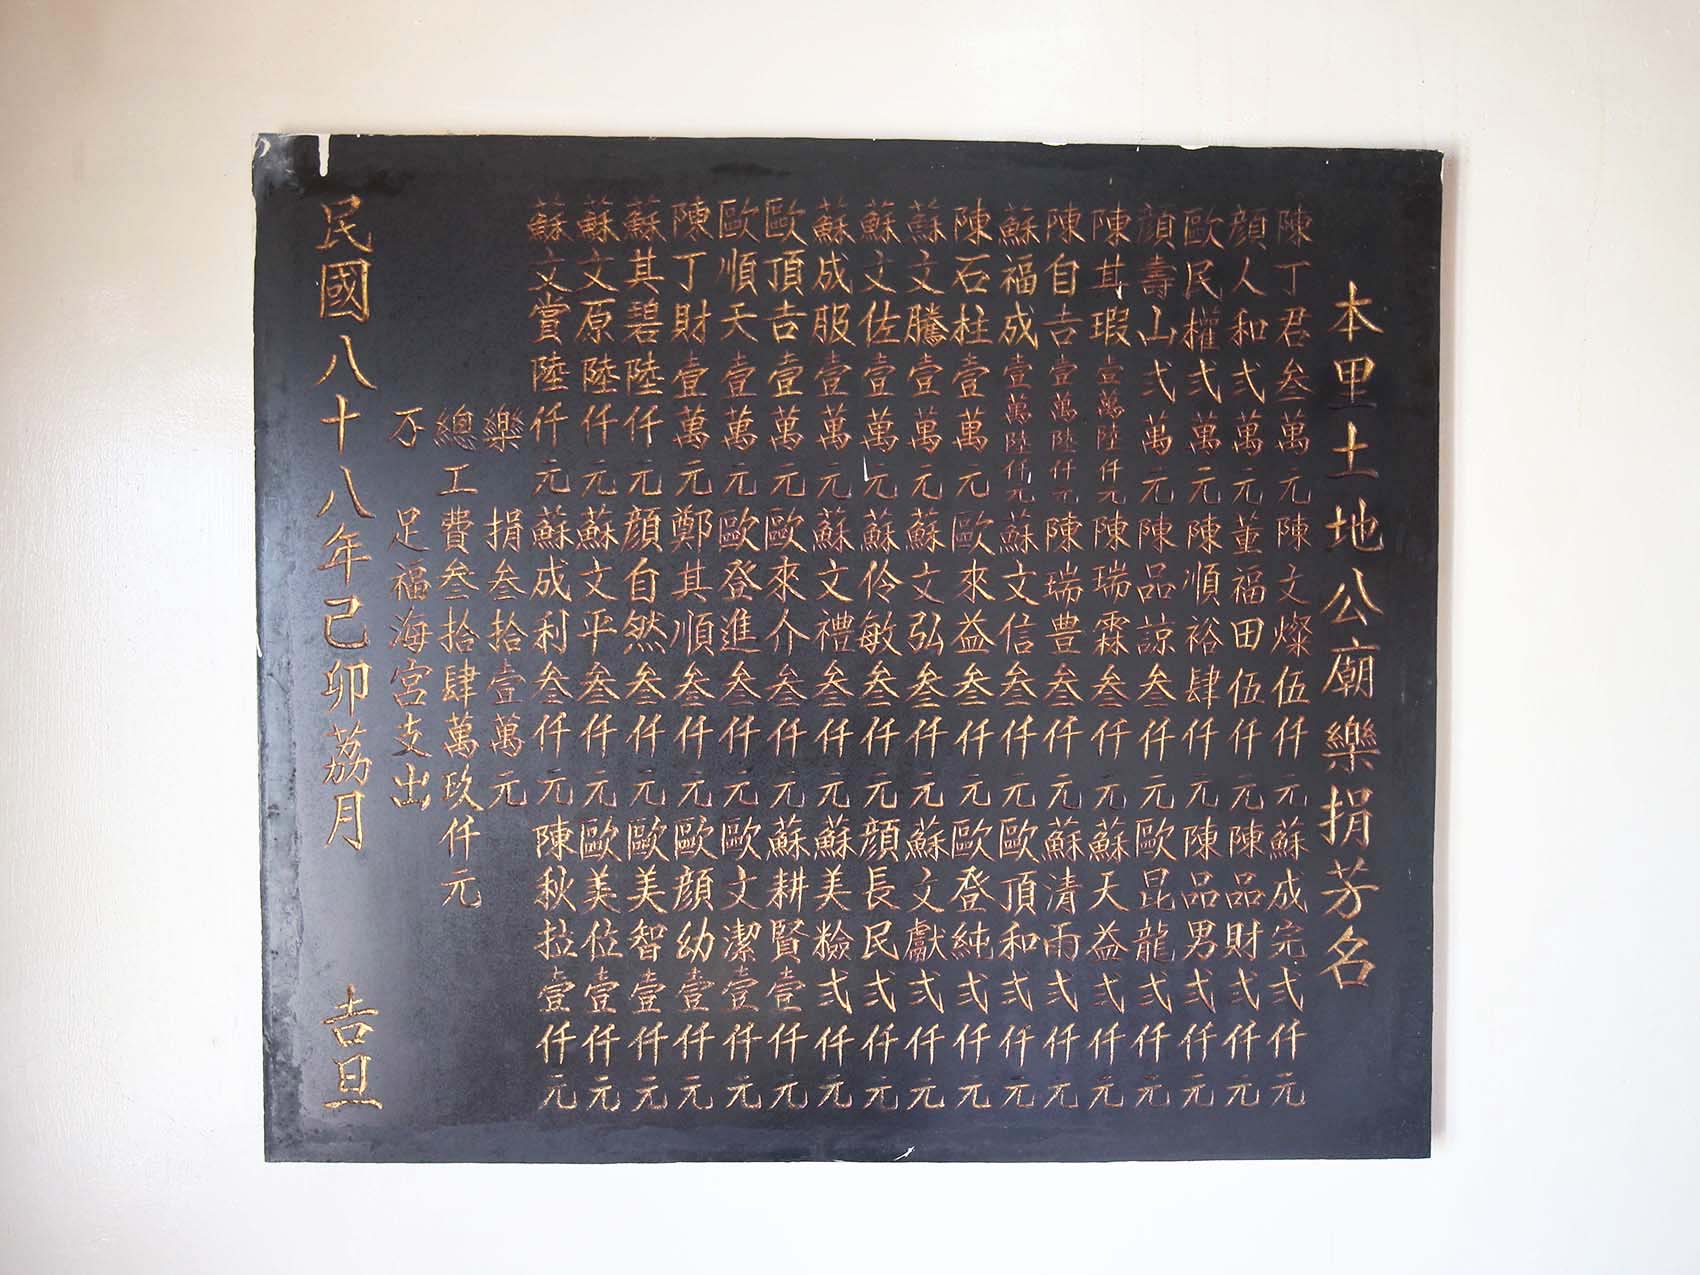 本里土地公廟樂捐芳名
陳丁君叁萬元陳文燦伍仟元蘇成完弍仟元
顏人和弍萬元董福田伍仟元陳品財弍仟元
歐民權弍萬元陳順裕肆仟元陳品男弍仟元
顏壽山弍萬元陳品諒叁仟元歐昆龍弍仟元
陳其瑕壹萬陸仟元陳瑞霖叁仟元蘇天益弍仟元
陳自吉壹萬陸仟元陳瑞豊叁仟元蘇清雨弍仟元
蘇福成壹萬陸仟元蘇文信叁仟元歐頂和弍仟元
陳石柱壹萬元歐來益叁仟元歐登純弍仟元
蘇文騰壹萬元蘇文弘叁仟元蘇文獻弍仟元
蘇文佐壹萬元蘇伶敏叁仟元顏長民弍仟元
蘇成服壹萬元蘇文禮叁仟元蘇美 弍仟元
歐頂吉壹萬元歐來介叁仟元蘇耕賢壹仟元
歐順天壹萬元歐登進叁仟元歐文潔壹仟元
陳丁財壹萬元鄭其順叁仟元歐顏幼壹仟元
蘇其碧陸仟元顏自然叁仟元歐美智壹仟元
蘇文原陸仟元蘇文平叁仟元歐美位壹仟元
蘇文賞陸仟元蘇成利叁仟元陳秋拉壹仟元
樂捐叁拾壹萬元
總工費叁拾肆萬玖仟元
不足福海宮支出
民國八十八年己卯荔月 吉旦